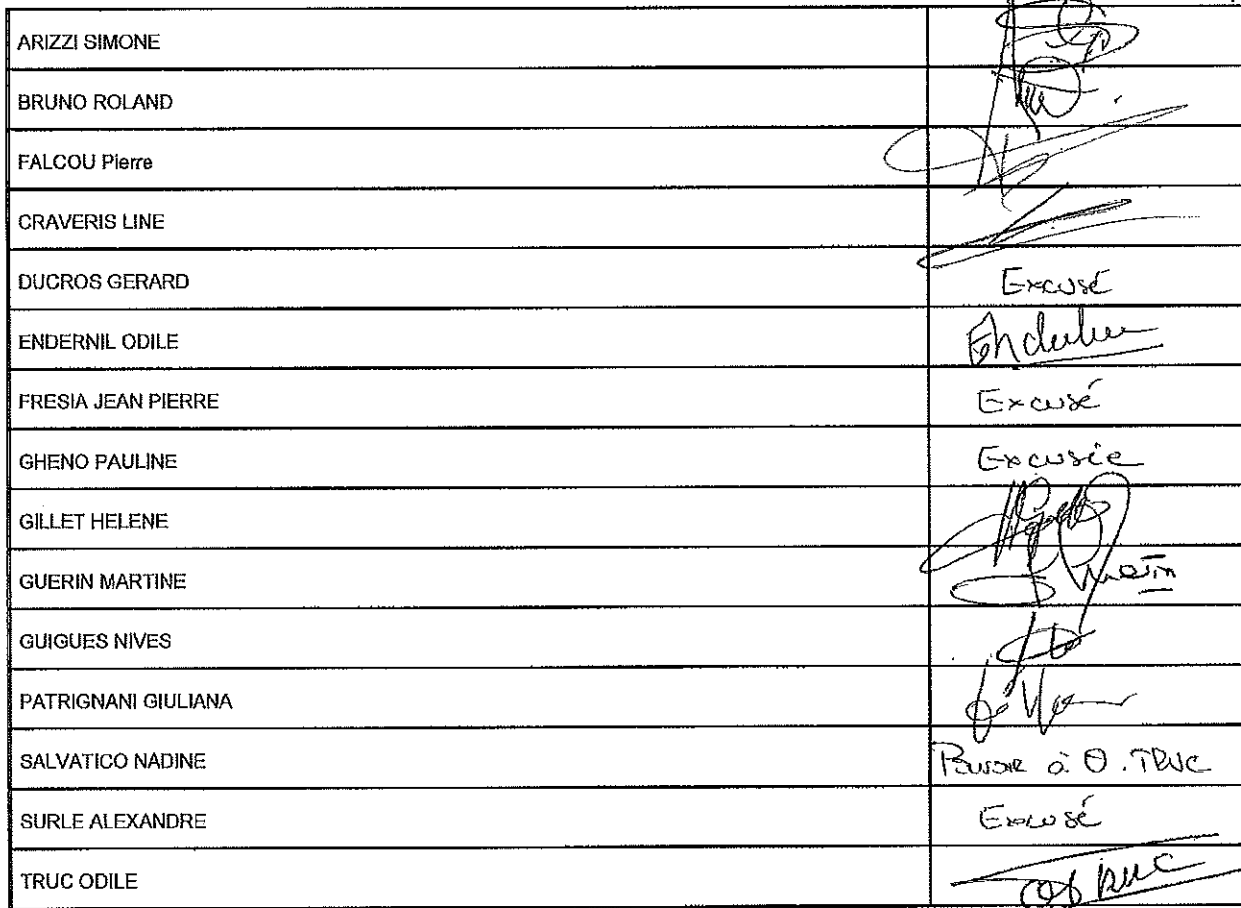 ARIZZI SIMONE
BRUNO ROLAND
FALCOU Pierre
CRAVERIS LINE
DUCROS GERARD Excusé
ENDERNIL ODILE
FRESIA JEAN PIERRE Excusé
GHENO PAULINE Excusée
GILLET HELENE
GUERIN MARTINE
GUIGUES NIVES
PATRIGNANI GIULIANA
SALVATICO NADINE Pouvoir à O. TRUC
SURLE ALEXANDRE Excusé
TRUC ODILE